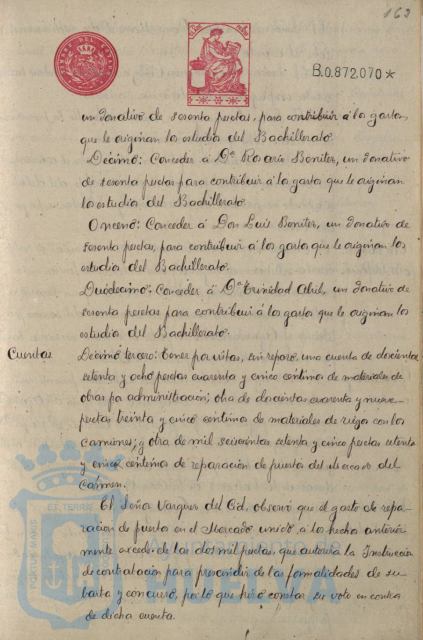 163
B.0.872.070*
un donativo de sesenta pesetas, para contribuir á los gastos,
que le originan los estudios del Bachillerato.
Décimo: Conceder á Dª Rosario Benites, un donativo
de sesenta pesetas para contribuir á los gastos que le originan
los estudios del Bachillerato.
Onceno: Conceder á Don Luis Benites, un donativo de
sesenta pesetas, para contribuir á los gastos que le originan los
estudios del Bachillerato.
Duodécimo: Conceder á Dª Trinidad Abril, un donativo de
sesenta pesetas para contribuir á los gastos que le originan los
estudios del Bachillerato.
Cuentas
Décimo tercero: Tener por vistas, sin reparo, una cuenta de doscientas
setenta y ocho pesetas cuarenta y cinco centimos de materiales de
obras por administración; otra de doscientas cuarenta y nueve
pesetas treinta y cinco centimos de materiales de riego con los
camiones; y otra de mil seiscientas setenta y cinco pesetas setenta
y cinco centimos de reparación de puestos del Mercado del
Carmen.
El Señor Vazquez del Cid, observó que el gasto de repa-
racion de puestos en el Mercado, unido á los hechos anterior-
mente excede de las dos mil pesetas, que autoriza la Instrucción
de contratación para prescindir de las formalidades de su-
basta y concurso, por lo que pidió constar su voto en contra
de dicha cuenta.
Ayuntamiento
PORTUS MARIS
ET TERRÆ